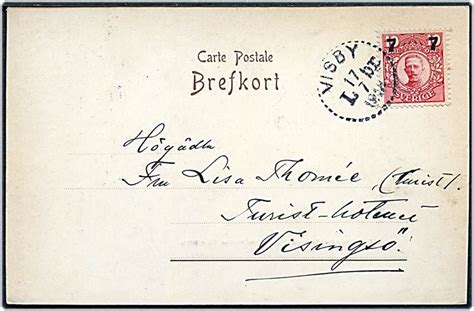 Carte Postale
Brefkort
VISBY
17
7
L
7 7
SVERIGE
Högädla
Fru Lisa Thomée, (turist).
Turist-hotellet
Visingsö.